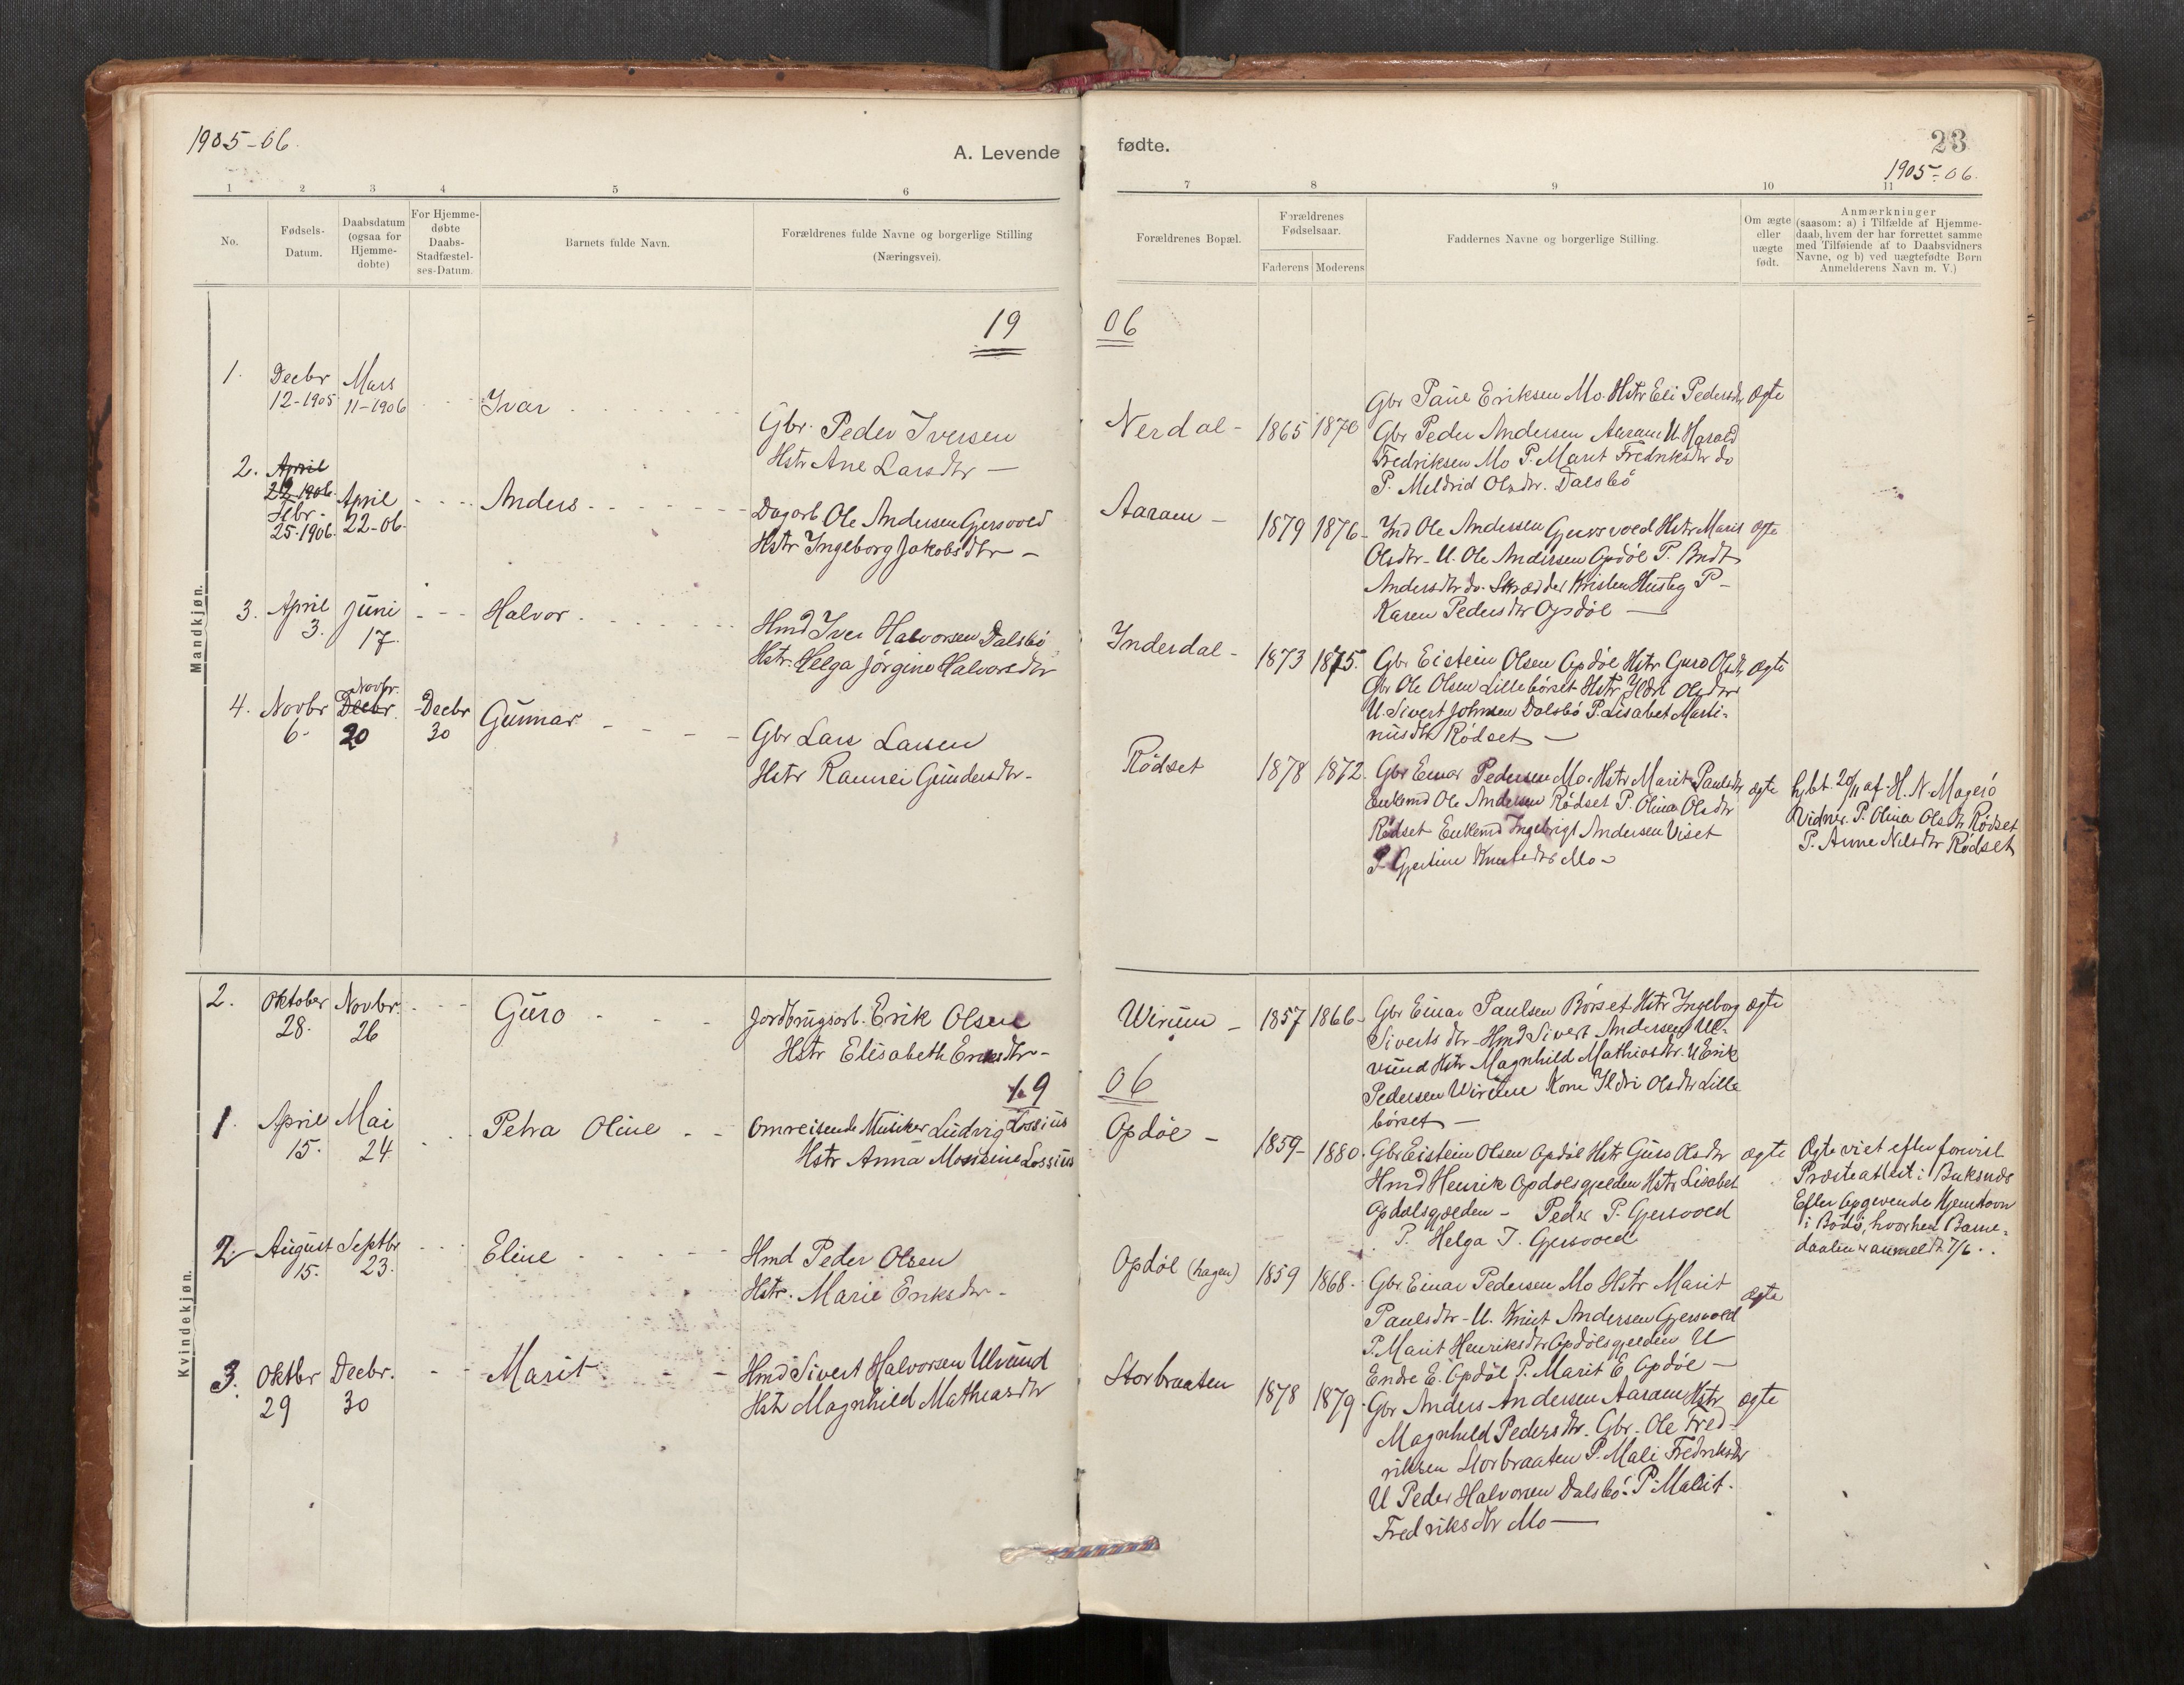 1905-06.
A. Levende
fødte.
23
1905-06.
1 2 3 4 5 6
7 8 9 10 11
No.
Fødsels-
Datum.
Daabsdatum
(ogsaa for
Hjemme-
døbte)
For Hjemme-
døbte
Daabs-
Stadfæstel-
ses-Datum.
Barnets fulde Navn.
Forældrenes fulde Navne og borgerlige Stilling
(Næringsvei).
Forældrenes Bopæl.
Forældrenes
Fødselsaar.
Faderens Moderens
Faddernes Navne og borgerlige Stilling.
Om ægte
eller
uægte
født.
Anmærkninger
(saasom: a) i Tilfælde af Hjemme-
daab, hvem der har forrettet samme
med Tilføiende af to Daabsvidners
Navne, og b) ved uægtefødte Børn
Anmelderens Navn m. V.)
Mandkjøn.
19 06
1. Decbr Mars
12-1905 11-1906 Ivar
Gbr. Peder Iversen
Hstr Ane Larsdtr
Nerdal - 1865 1870
Gbr Paul Eriksen Mo. Hstr Eli Pedersdtr Ægte
Gbr Peder Andersen Aaram U. Harald
Fredriksen Mo P. Marit Fredriksdtr do
P. Meldrid Olsdtr. Dalsbø
2. April
22 1906
Febr. April
25-1906. 22-06. Anders
Dagarb Ole Andersen Gjersvold
Hstr Ingeborg Jakobsdtr -
Aaram - 1879 1876
Ind Ole Andersen Gjersvold Hstr Marit ægte
Olsdtr - U. Ole Andersen Opdøl P. Brndt
Andersdtr do. Skrædder Kristen Husby P-
Karen Pedersdtr Opdøl
3. April Juni
3. 17. Halvor
Hmd Iver Halvorsen Dalsbø
Hstr. Helga Jørgine Halvorsdtr
Inderdal - 1873 1875.
Gbr Eistein Olsen Opdøl Hstr Guro Olsdtr Ægte
Gbr Ole Olsen Lillebørset Hstr Ildri Olsdtr
U. Sivert Johnsen Dalsbø P. Lisabet Marti-
nusdtr Rødset
4. Novbr Novbr. Decbr Decbr
6. 20 30 Gunnar
Gbr Lars Larsen
Hstr Rannei Gundersdtr.
Rødset 1878 1872.
Gbr Einar Pedersen Mo. Hstr Marit Paulsdtr ægte
Enkemd Ole Andersen Rødset P. Olina Olsdtr
Rødset Enkemd Ingebrigt Andersen Viset
P. Gjertine Knutsdtr Mo
hjbt. 20/11 af H. N. Magerø
Vidner. P. Olina Olsdtr Rødset
P. Anne Nilsdtr Rødset
Kvindekjøn.
2. Oktober Novbr.
28. 26 Guro
Jordbrugsarb. Erik Olsen
Hstr Elisabeth Eriksdtr-
Wirum - 1857 1866-
Gbr Einar Paulsen Børset Hstr Ingeborg ægte
Siverts dtr - Hmd Sivert Andersen Ul-
vund Hstr Magnhild Mathiasdtr. U Erik
Pedersen Wirum Kone Ildri Olsdtr Lille
børset
19 06
1. April Mai
15. 24 Petra Oline
Omreisende Musiker Ludvig Lossius
Hstr Anna Mosine Lossius
Opdøl - 1859- 1880.
Gbr Eistein Olsen Opdøl Hstr Guro Olsdtr ægte
Hmd Henrik Opdølsgjelden Hstr Lisabet
Opdølsgjelden - Peder P. Gjersvold
P. Helga I. Gjersvold
Ægte viet efter forevist
Præsteattest i Buksnæs
Efter Opgivende Hjemstavn
i Bodø, hvorhen Barne-
daaben er anmeldt 7/6.
2. August Septbr
15. 23. Eline
Hmd Peder Olsen
Hstr. Marie Eriksdtr -
Opdøl (hagen) 1859 1868-
Gbr Einar Pedersen Mo Hstr Marit ægte
Paulsdtr - U. Knut Andersen Gjersvold
P. Marit Henriksdtr Opdølsgjelden U
Endre E. Opdøl P. Marit E Opdøl
3. Oktbr Decbr.
29 30 Marit
Hmd Sivert Halvorsen Ulvund
Hstr Magnhild Mathiasdtr
Storbraaten 1878 1879.
Gbr Anders Andersen Aaram Hstr ægte
Magnhild Pedersdtr. Gbr. Ole Fred-
riksen Storbraaten P. Mali Fredriksdtr
U Peder Halvorsen Dalsbø. P. Malit.
Fredriksdtr Mo